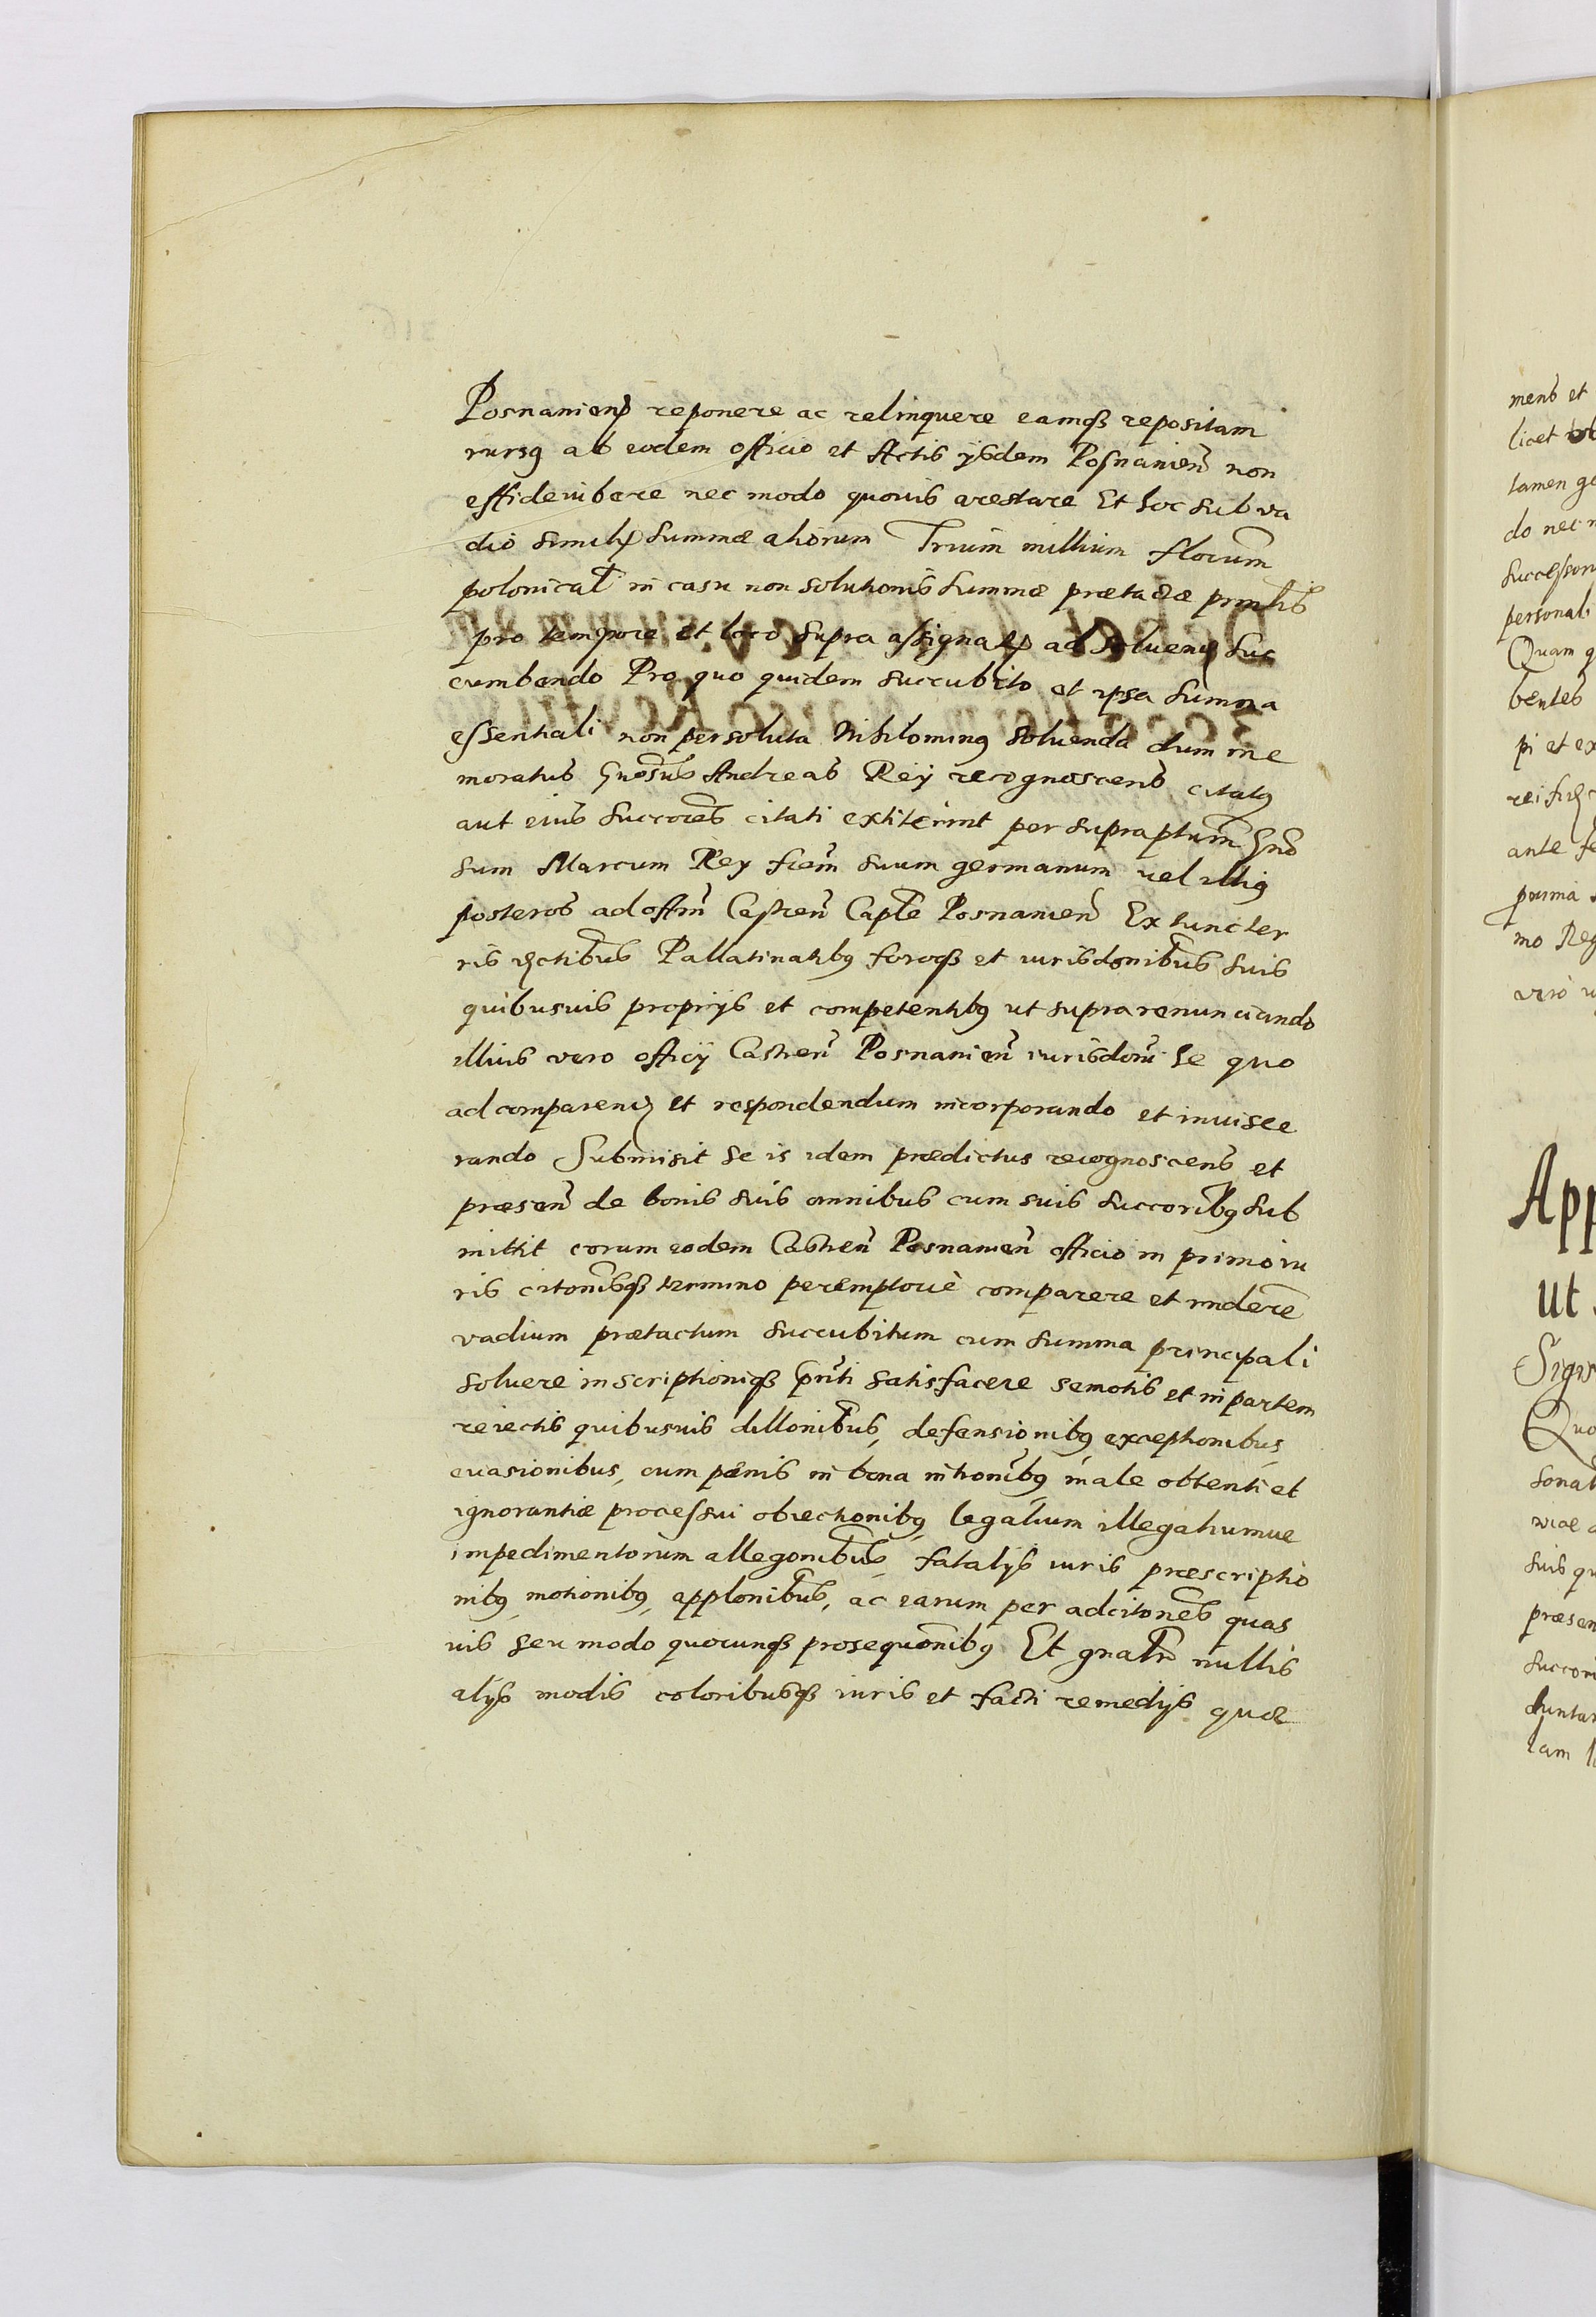 Posnanien reponere ac relinquere eamqз repositam
rursq ab eodem officio et Actis ijsdem Posnanien non
effideiubere nec modo quovis arestare Et hoc sub va
dio similis summæ aliorum Trium millium florum
polonical in casu non solutionis summæ prætactæ prnlis
pro tempore et loco supra assignatis ad soluen suc
cumbendo Pro quo quidem succubito et ipsa summa
essentiali non persoluta Nihilominq soluenda dum me
moratus Gnosus Andreas Rey recognoscens citatq
aut eius succores citati extiterint per supraptum Gno
sum Marcum Rey frem suum germanum vel illiq
posteros ad offm Castren Caple Posnanien Ex tunc ter
ris dctibus Pallatinatibq foroqз et iurisdonibus suis
quibusuis proprijs et competentibq ut supra renunciando
illius vero officij Castren Posnanien iurisdoni se quo
ad comparen et respondendum incorporando et inuisce
rando Submisit se is idem prædictus recognoscens et
præsen de bonis suis omnibus cum suis succoribq sub
mittit coram eodem Castren Posnanien officio in primo iu
ris citonisqз termino peremptorie comparere et rndere
vadium prætactum succubitum cum summa principali
soluere inscriptioniqз prnti satisfacere semotis et in partem
reiectis quibusuis dillonibus, defensionibq exceptionibus,
euasionibus, cum pænis in bona intronibq male obtenti et
ignorantiæ processui obiectionibq legalium illegaliumue
impedimentorum allegonibus, fatalijs iuris præscriptio
nibq motionibq, applonibus, ac earum per adcitones quas
uis seu modo quocunqз prosequonibq Et gnalr nullis
alijs modis coloribusqз iuris et facti remedijs quæ
mens et
licet
tamen ge
do nec
successor
personali
Quam q
bentes
pi et ex
rei
ante fe
prima
mo Reg
vero
App
ut
Sigis
Quo
sonal
suis qu
præsen
succori
tam